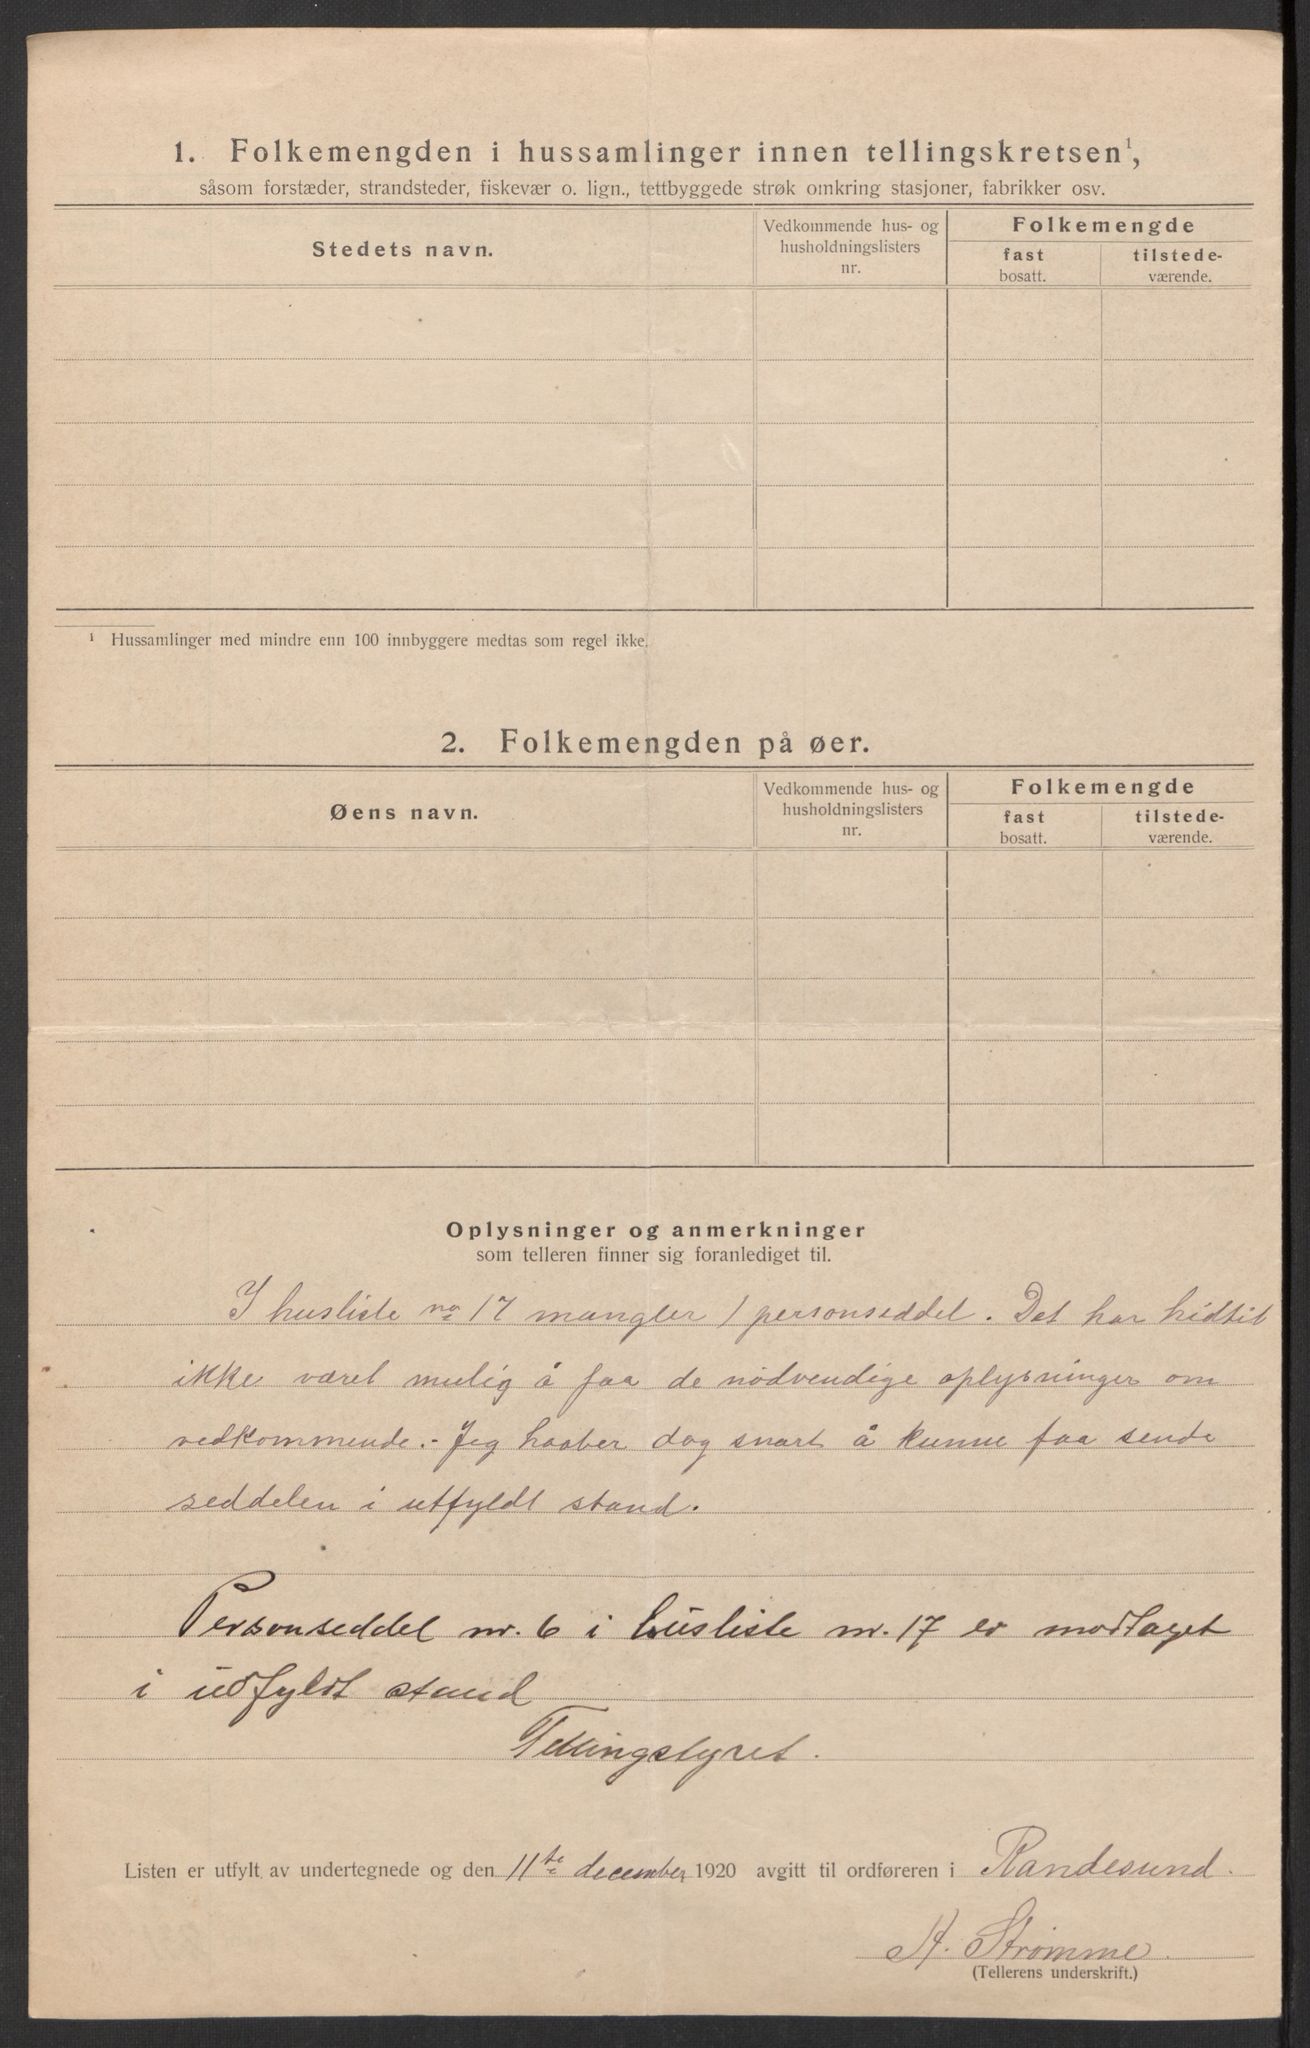 1. Folkemengden i hussamlinger innen tellingskretsen¹,
såsom forstæder, strandsteder, fiskevær o. lign., tettbyggede strøk omkring stasjoner, fabrikker osv.
Stedets navn.
Vedkommende hus- og
husholdningslisters
nr.
Folkemengde
fast
bosatt.
tilstede-
værende.
¹ Hussamlinger med mindre enn 100 innbyggere medtas som regel ikke.
2. Folkemengden på øer.
Øens navn.
Vedkommende hus- og
husholdningslisters
nr.
Folkemengde
fast
bosatt.
tilstede-
værende.
Oplysninger og anmerkninger
som telleren finner sig foranlediget til.
I husliste no 17 mangler 1 personseddel. Det har hidtil
ikke været mulig å faa de nödvendige oplysninger om
vedkommende.- Jeg haaber dog snart å kunne faa sende
seddelen i utfyldt stand.
Personseddel nr. 6 i husliste nr. 17 er modtaget
i udfyldt stand
Tellingstyret.
Listen er utfylt av undertegnede og den 11te december 1920 avgitt til ordføreren i Randesund.
A. Strømme.
(Tellerens underskrift.)